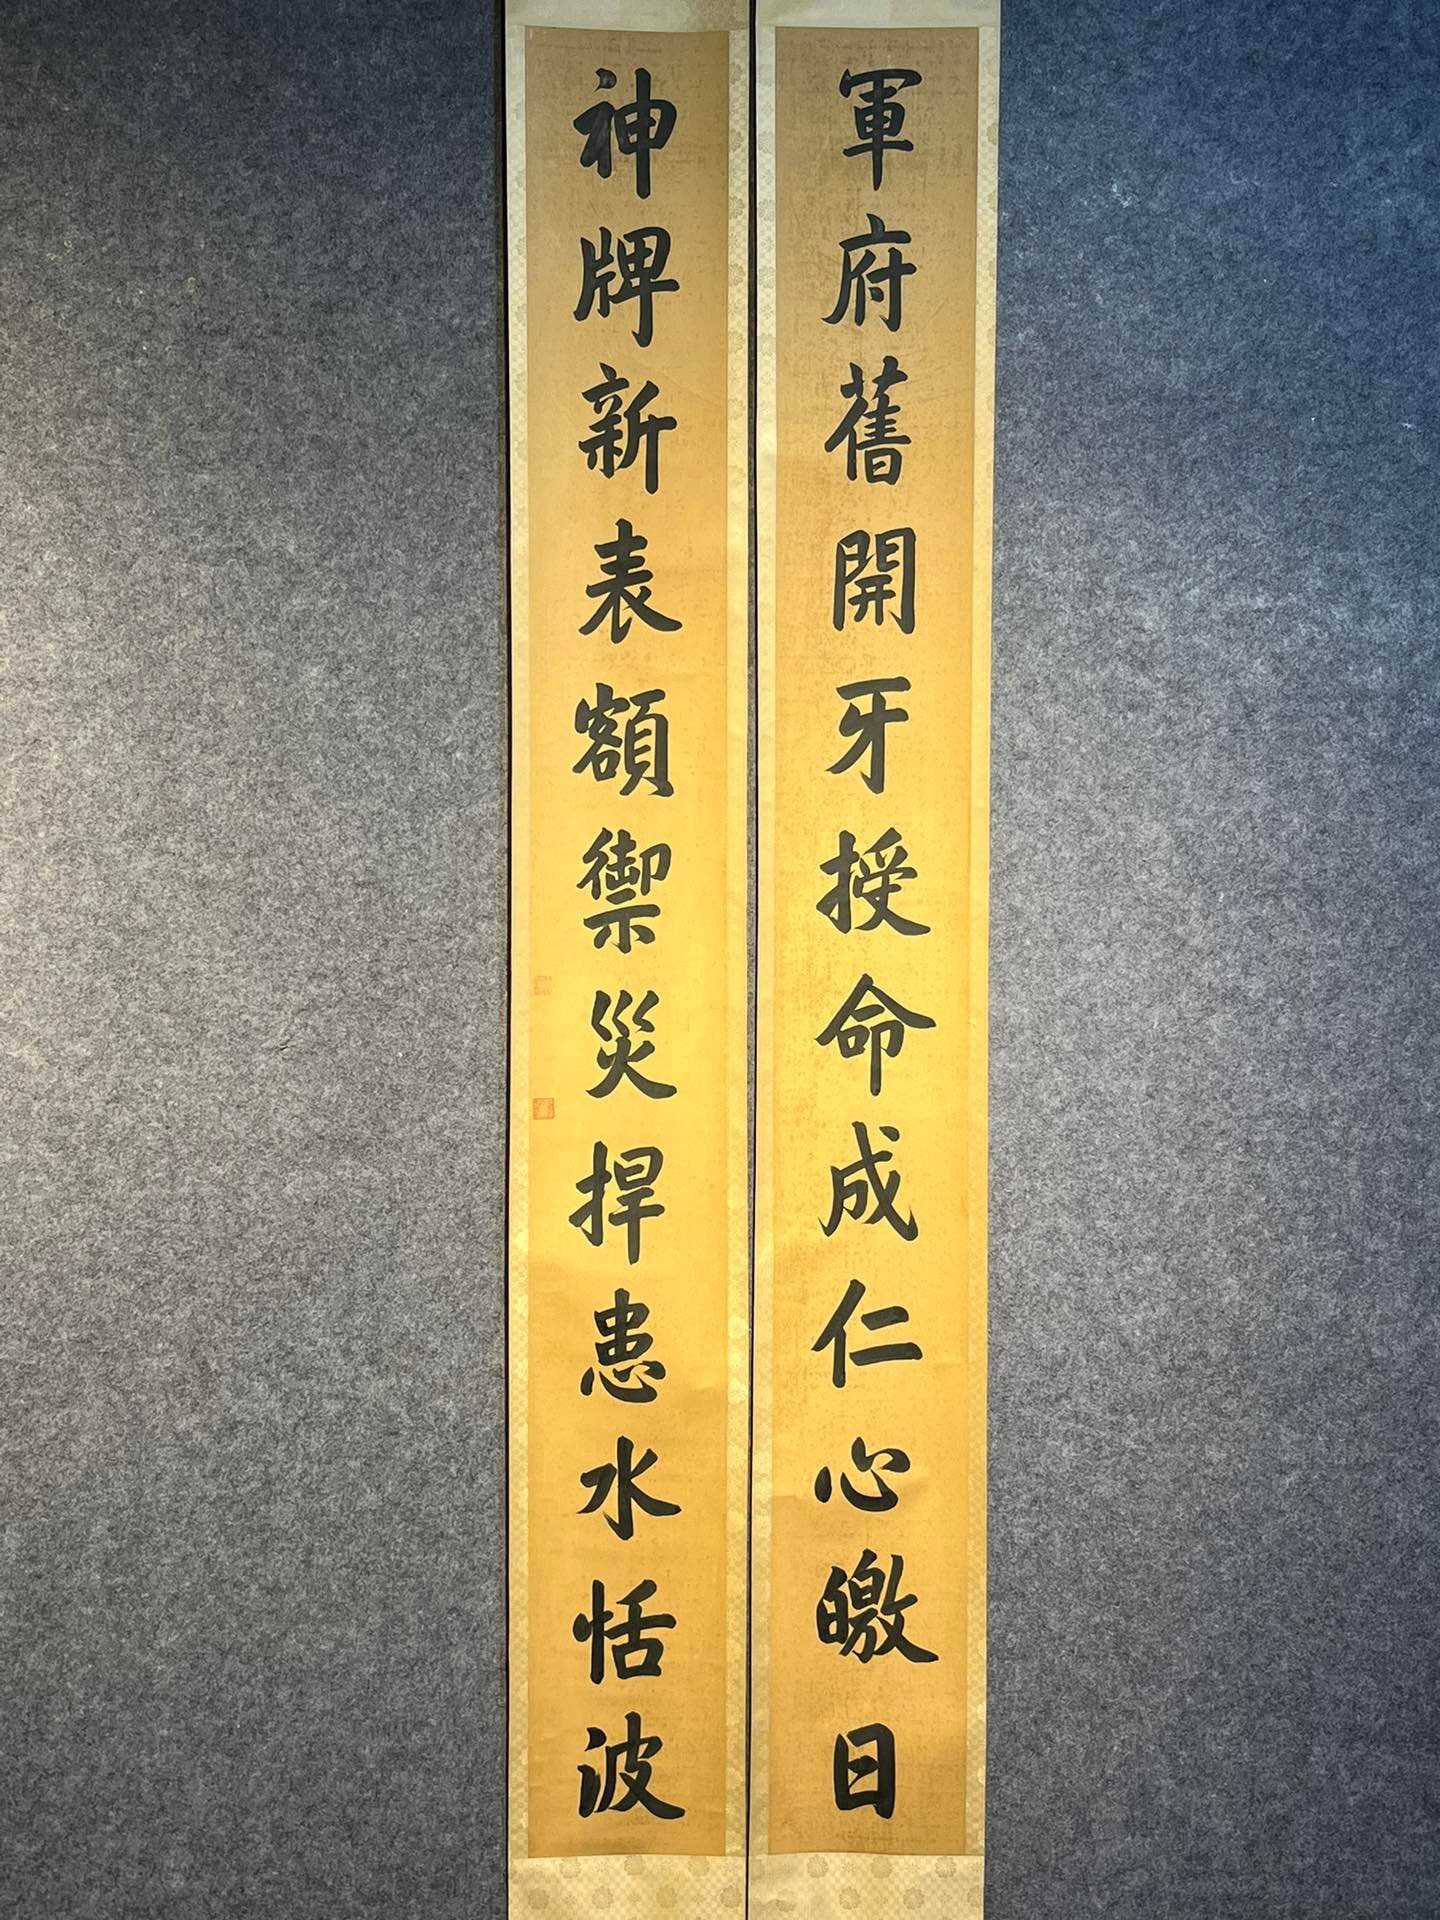 軍府舊開牙授命成仁心皦日
神牌新表額禦災捍患水恬波